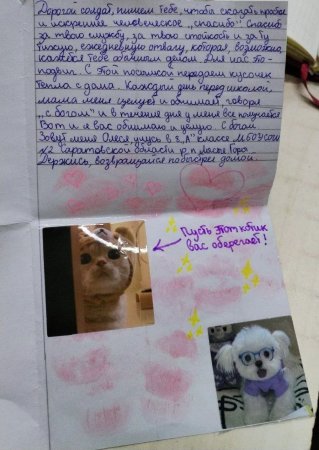 Дорогой солдат, пишем тебе, чтобы сказать простое
и искреннее человеческое „спасибо". Спасибо
за твою службу, за твою стойкость и за ту
тихую, ежедневную отвагу, которая, возможно,
кажется тебе обычным делом. Для нас это -
подвиг. С этой посылкой передаём кусочек
тепла с дома. Каждый день перед школой,
мама меня целует и обнимает, говоря
„с богом" и в течение дня у меня все получается
Вот и я вас обнимаю и целую. С богом
Зовут меня Олеся, учусь в 8 „А" классе МБОУСОШ
№2 Саратовской области р.п Лысые Горы
Держись, возвращайся побыстрее домой.
Пусть этот котик
вас оберегает!